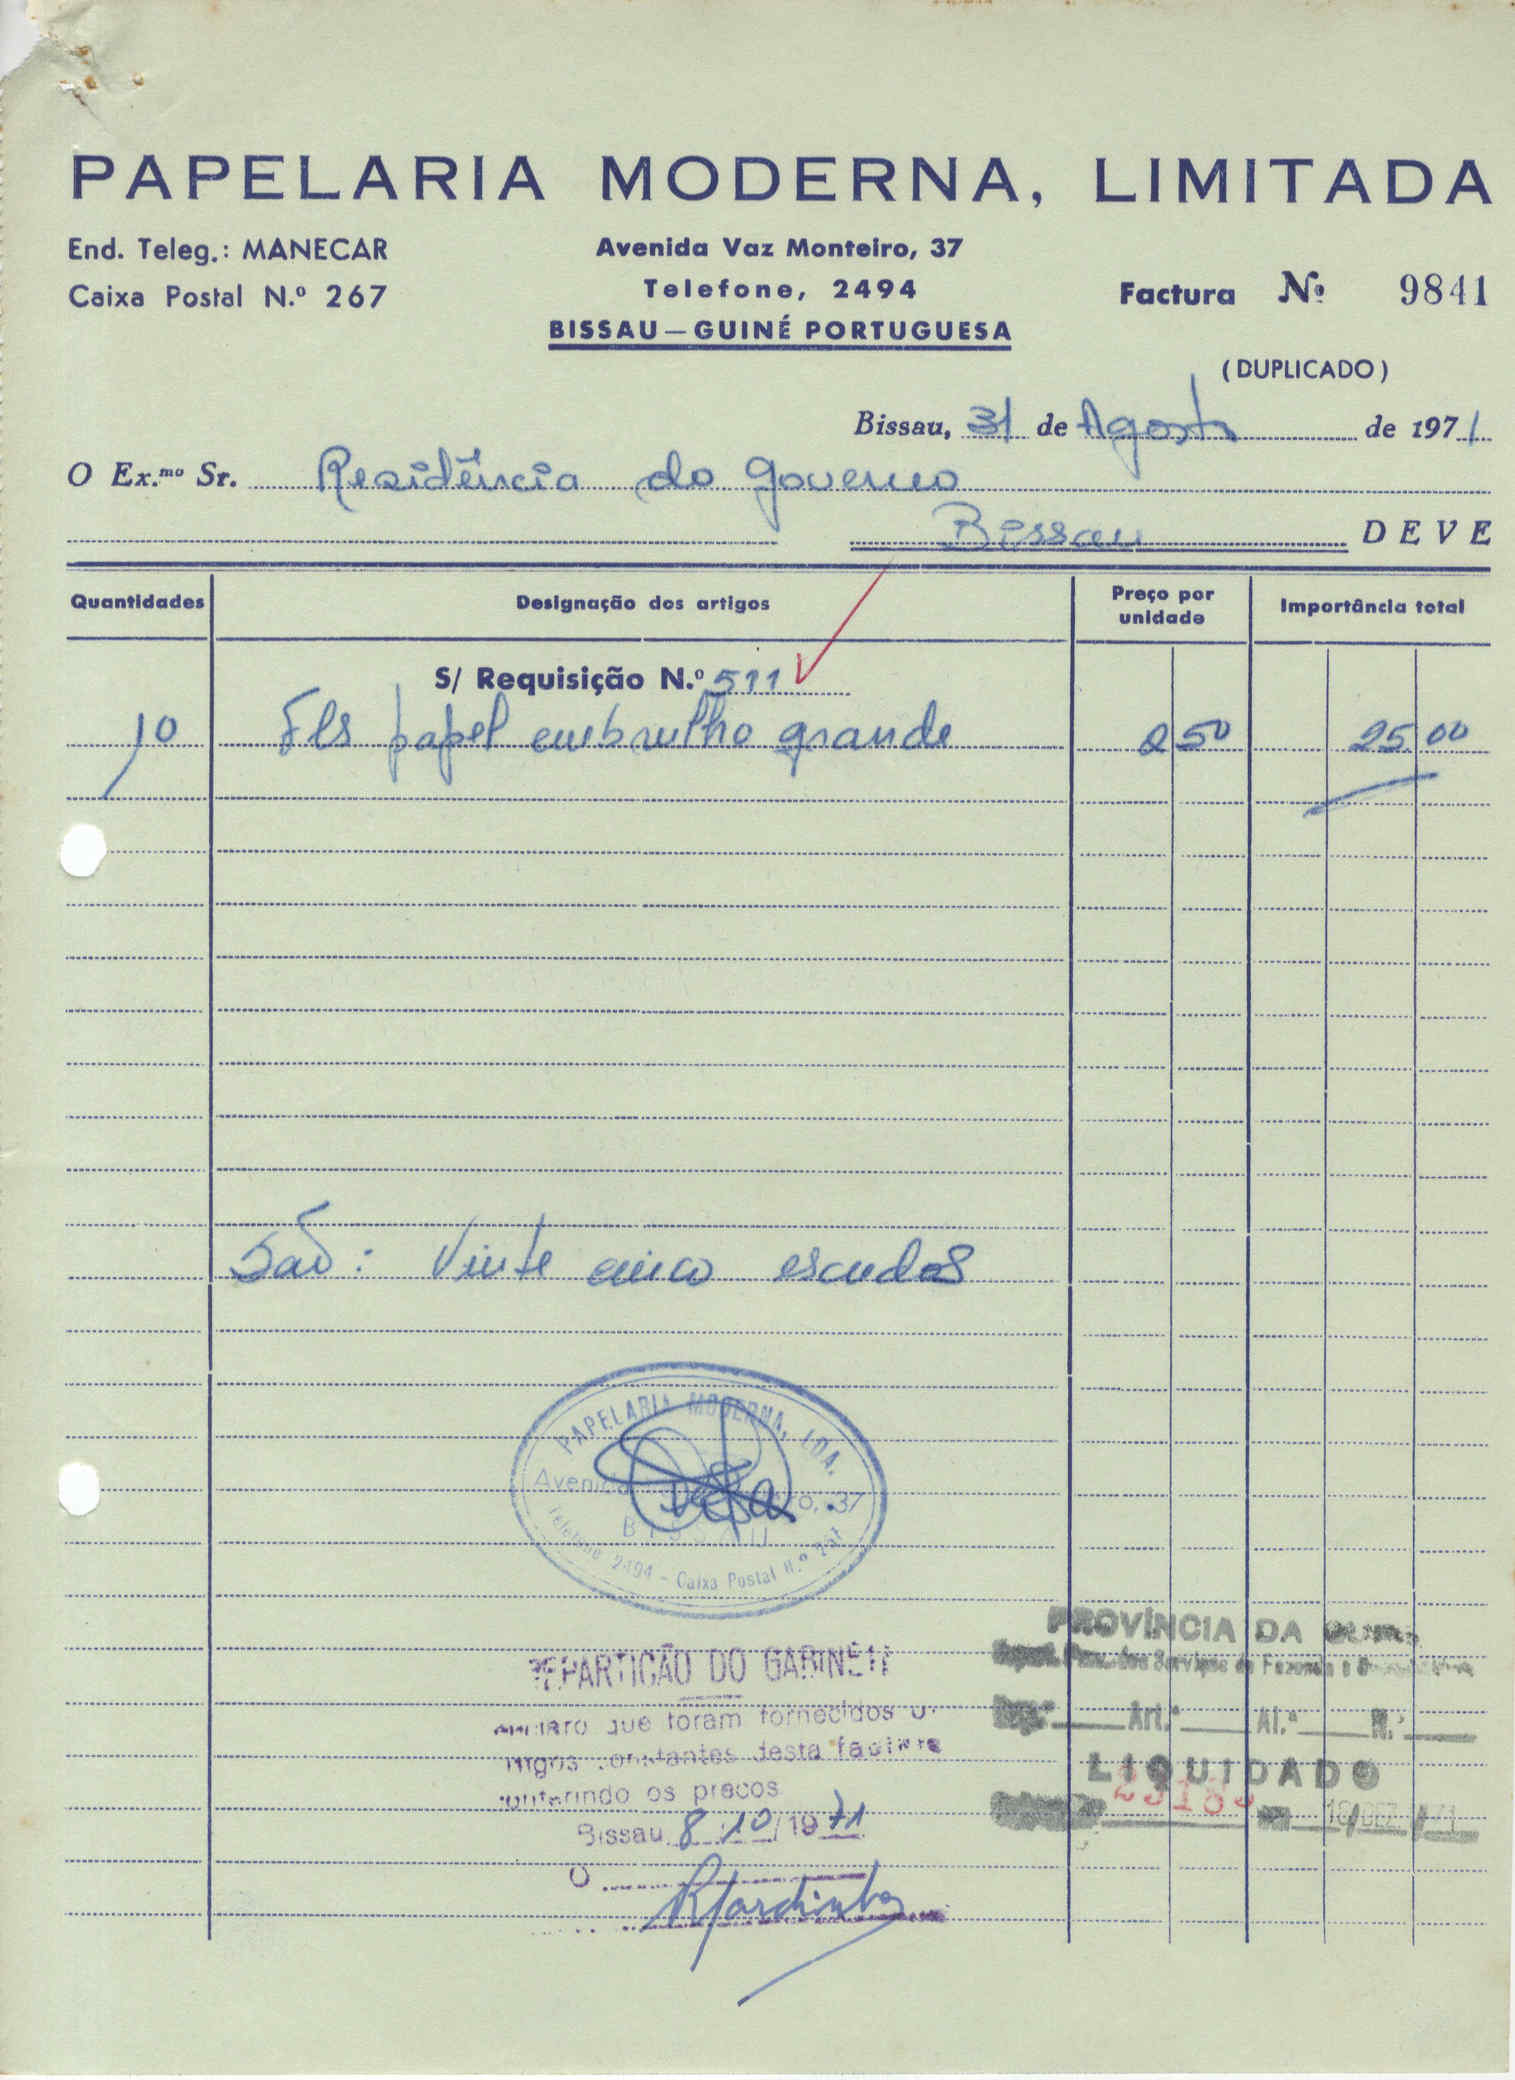 PAPELARIA MODERNA, LIMITADA
End. Teleg.: MANECAR
Caixa Postal N.º 267
Avenida Vaz Monteiro, 37
Telefone, 2494
BISSAU — GUINÉ PORTUGUESA
Factura Nº 9841
(DUPLICADO)
Bissau, 31 de Agosto de 1971
O Ex.mo Sr. Residência do Governo
Bissau DEVE
Quantidades Designação dos artigos Preço por unidade Importância total
S/ Requisição N.º 511
10 Fls papel embrulho grande 2 50 25 00
São: Vinte cinco escudos
PAPELARIA MODERNA, LDA.
Avenida 37
BISSAU
Telefone 2494 - Caixa Postal N.º 267
REPARTIÇÃO DO GABINETE
que foram fornecidos
constantes desta factura
os preços
Bissau 8/10/1971
O
PROVÍNCIA DA
dos Serviços de Fazenda e
Art.º Al.ª N.º
LIQUIDADO
18 DEZ. 71